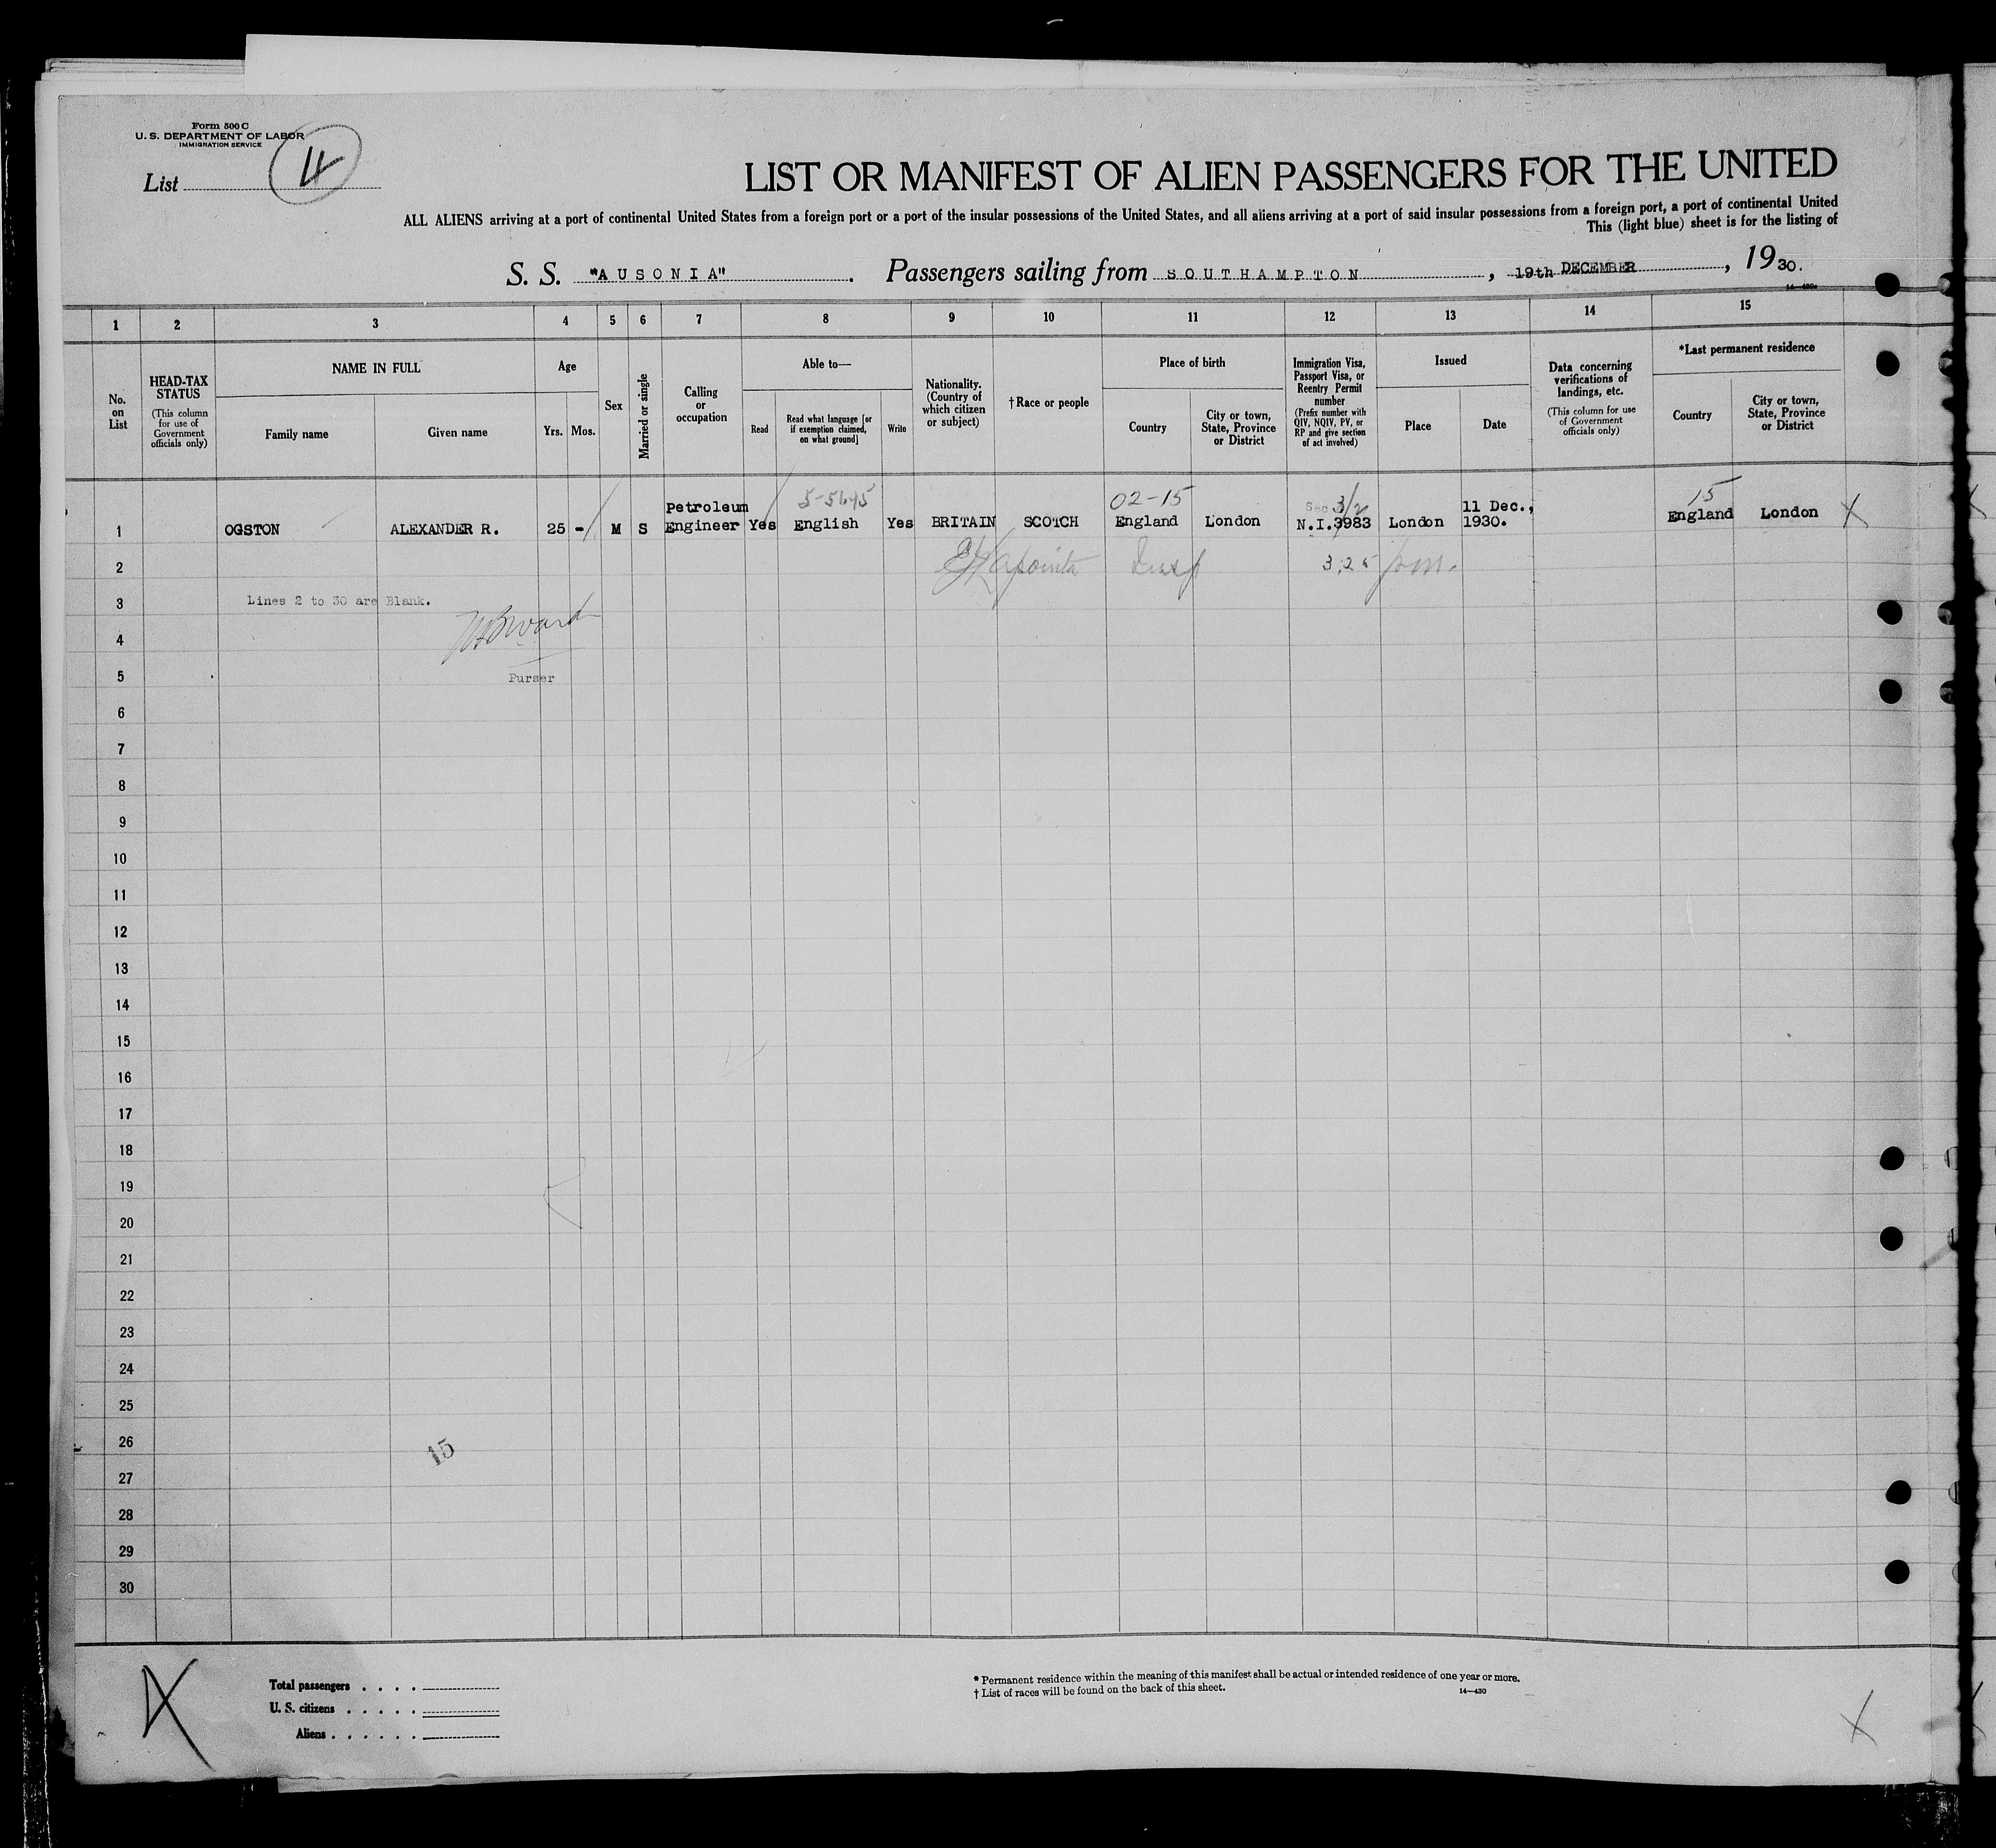 Form 500 C
U. S. DEPARTMENT OF LABOR
IMMIGRATION SERVICE
List
LIST OR MANIFEST OF ALIEN PASSENGERS FOR THE UNITED
ALL ALIENS arriving at a port of continental United States from a foreign port or a port of the insular possessions of the United States, and all aliens arriving at a port of said insular possessions from a foreign port, a port of continental United
This (light blue) sheet is for the listing of
S. S. "AUSONIA". Passengers sailing from SOUTHAMPTON, 19th DECEMBER, 1930.
1 2 3 4 5 6 7 8 9 10 11 12 13 14 15
No. on List
HEAD-TAX STATUS
(This column for use of Government officials only)
NAME IN FULL
Family name
Given name
Age
Yrs. Mos.
Sex
Married or single
Calling or occupation
Able to—
Read
Read what language [or if exemption claimed, on what ground]
Write
Nationality. (Country of which citizen or subject)
†Race or people
Place of birth
Country
City or town, State, Province or District
Immigration Visa, Passport Visa, or Reentry Permit number
(Prefix number with QIV, NQIV, PV, or RP and give section of act involved)
Issued
Place
Date
Data concerning verifications of landings, etc.
(This column for use of Government officials only)
*Last permanent residence
Country
City or town, State, Province or District
5-5645 02-15 Sec 3/2 15
1 OGSTON ALEXANDER R. 25 - M S Petroleum Engineer Yes English Yes BRITAIN SCOTCH England London N.I.3983 London 11 Dec., 1930. England London X
2
3 Lines 2 to 30 are Blank.
4
5 Purser
6
7
8
9
10
11
12
13
14
15
16
17
18
19
20
21
22
23
24
25
26 15
27
28
29
30
Total passengers . . . .
U. S. citizens . . . . .
Aliens . . . . . .
* Permanent residence within the meaning of this manifest shall be actual or intended residence of one year or more.
† List of races will be found on the back of this sheet.
14—430